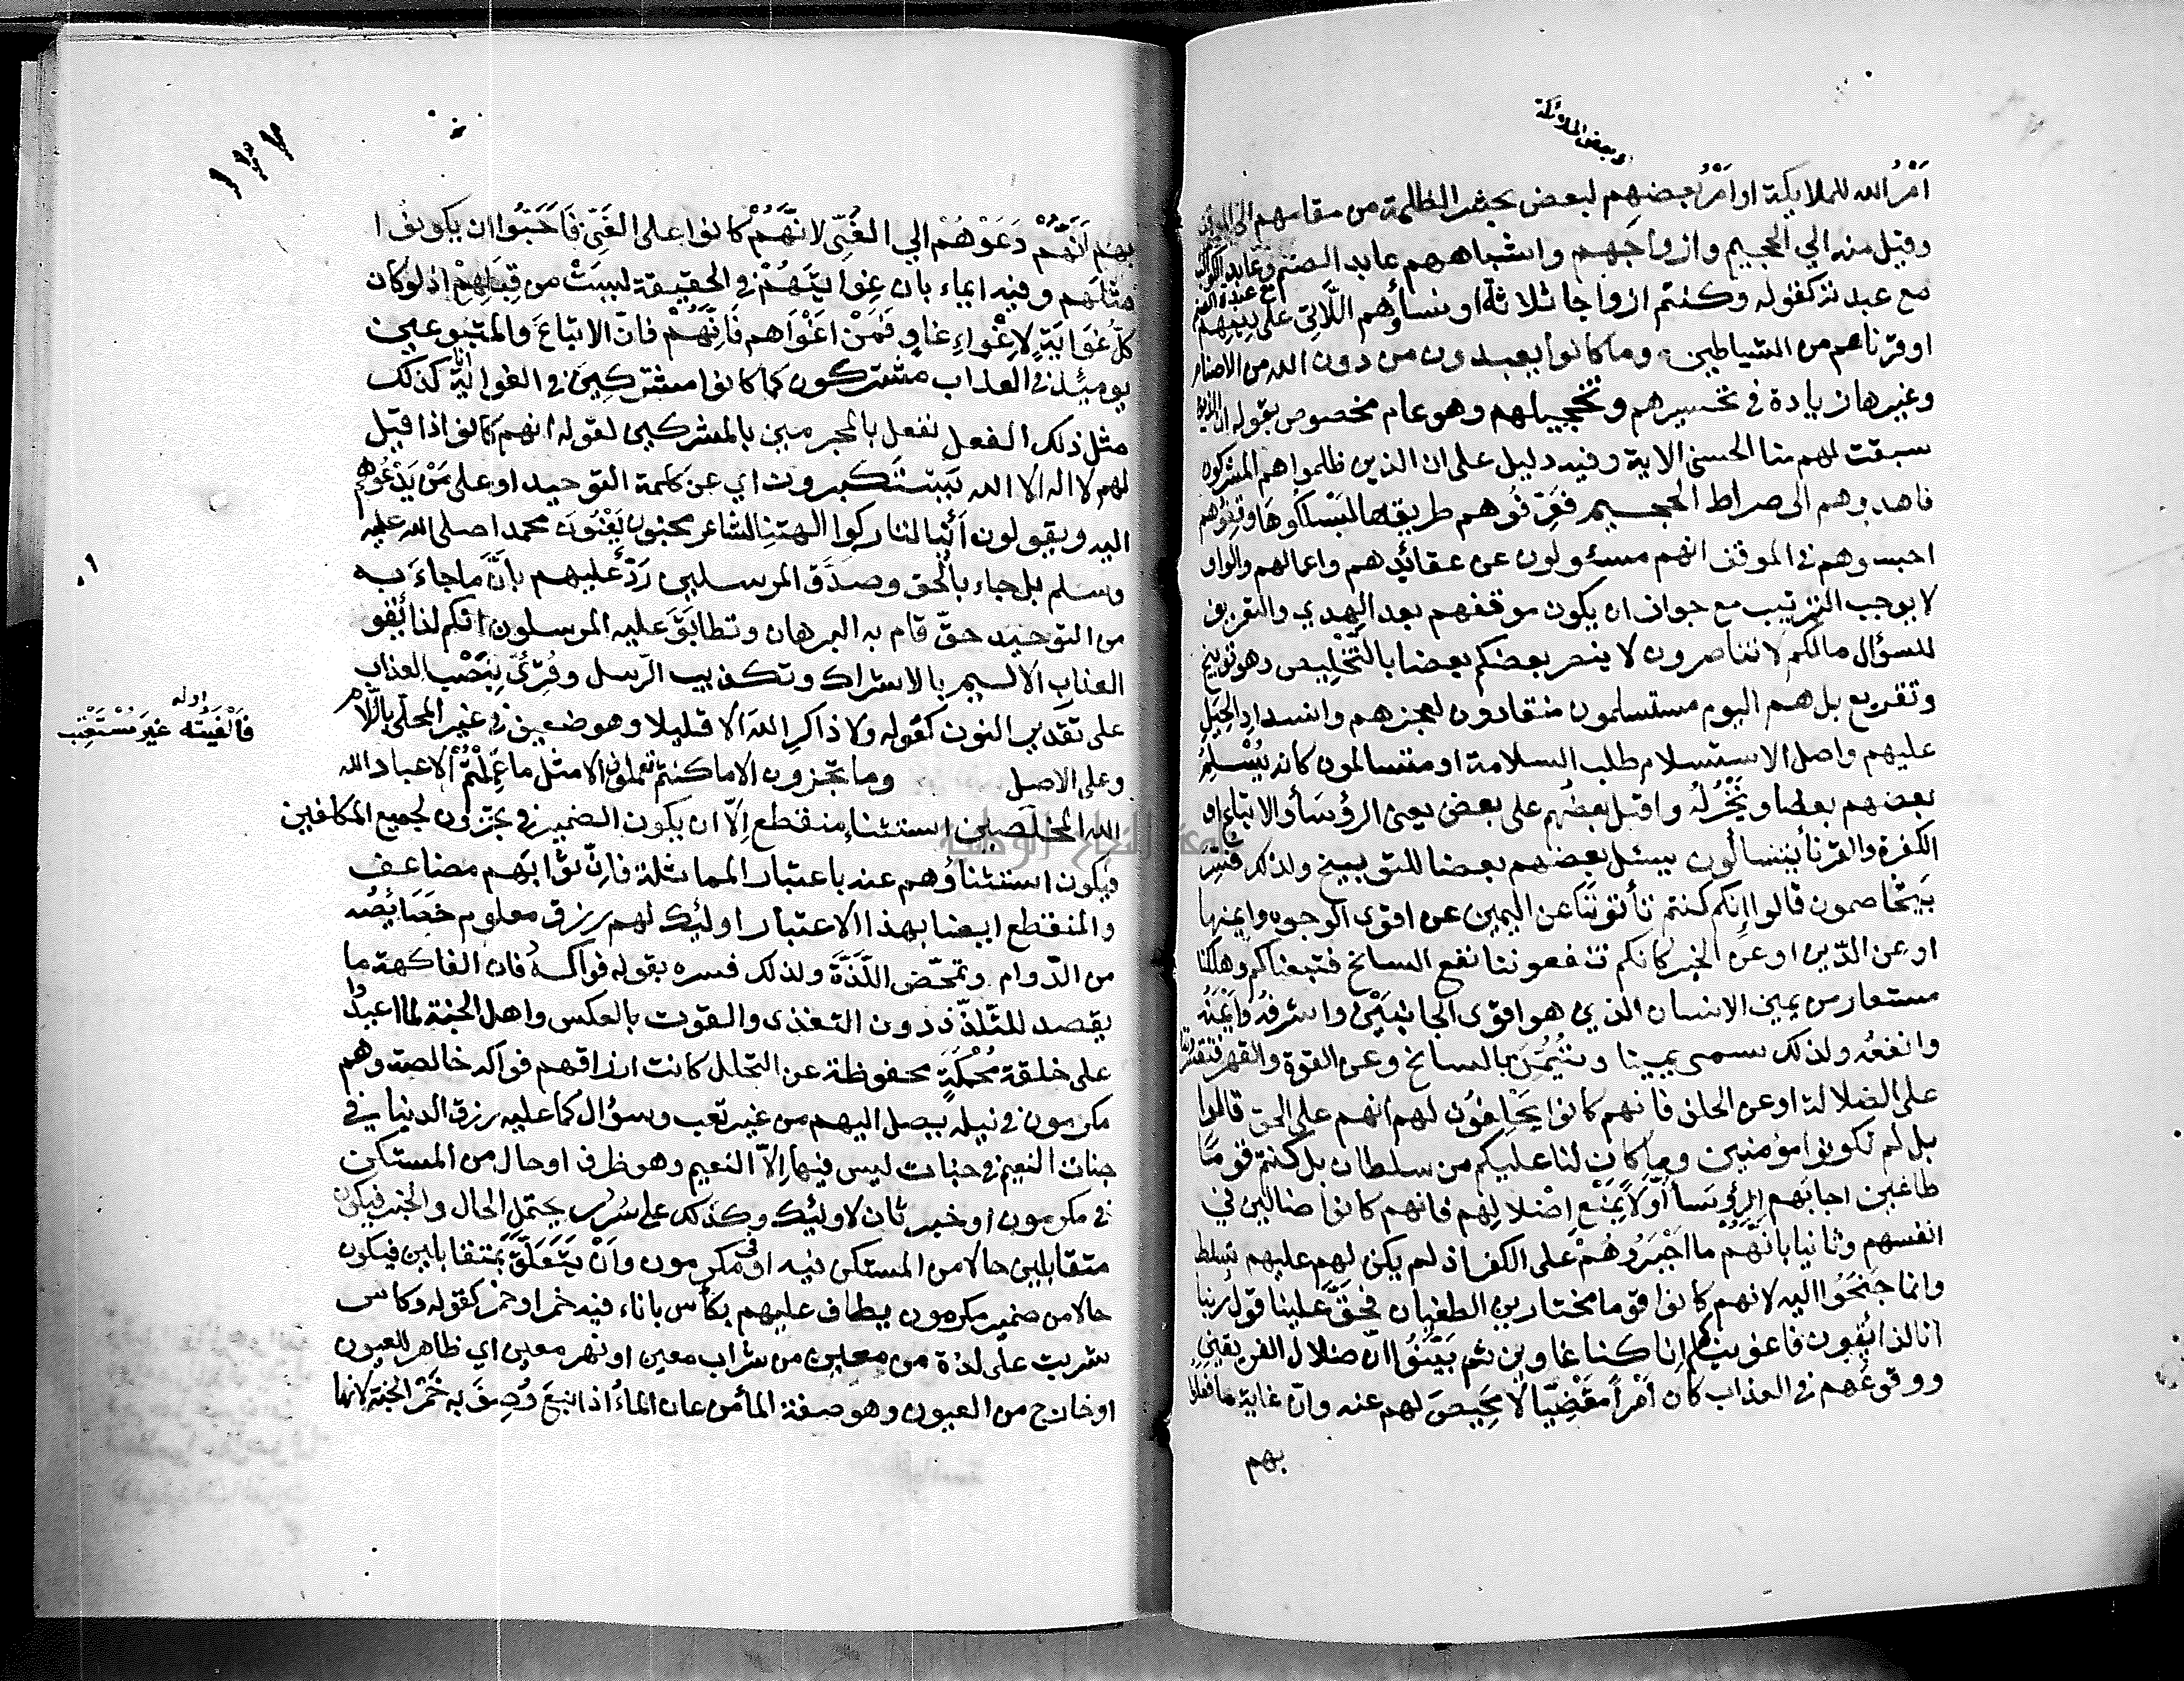 وبعض الملائكة
أَمْرُ الله للملايكة او أَمْرُ بعضهم لبعض بحشر الظلمة من مقامهم الى الموقف
وقيل منه الي الجحيم وازواجهم واشباههم عابد الصنم وعابد الكواكب
مع عبدته كقوله وكنتم ازواجا ثلاثة او نساؤهم اللّاتي على دينهم
او قرناهم من الشياطين وما كانوا يعبدون من دون الله من الاصنام
وغيرها زيادة في تحسيرهم وتخجيلهم وهو عام مخصوص بقوله ان الذين
سبقت لهم منا الحسنى الاية وفيه دليل على ان الذين ظلموا هم المشركون
فاهدوهم الى صراط الجحيم فعَرِّفُوهم طريقها ليسلكوها وقفوهم
احبسوهم في الموقف انهم مسئولون عن عقائدهم واعمالهم والواو
لا يوجب الترتيب مع جواز ان يكون موقفهم بعد الهدي والتعريف
للسؤال مالكم لا تناصرون لا ينصر بعضكم بعضا بالتَّخْلِيص وهو توبيخ
وتقريع بل هم اليوم مستسلمون منقادون لعجزهم وانسداد الحِيَلِ
عليهم واصل الاستسلام طلب السلامة او متسالمون كانه يُسْلِمُ
بعضهم بعضا ويَخْذُلُه واقبل بعضُهم على بعض يعني الرؤسَأ والاتباع او
الكفرة والقرنأ يتسألون يسئل بعضهم بعضا للتوبيخ ولذلك فُسِّرَ
بَيَتَخاصمون قالوا إنكم كنتم تأتونَنَا عن اليمين عن اقوى الوجوه وايمنها
او عن الدّين او عن الخير كانكم تنفعوننا نفع السانح فتبعناكم وهلكنا
مستعار من يمين الانسان الذي هو اقوى الجانبَيْنِ واشرفُه وأَيْمَنُه
وانفعُه ولذلك سمى يمينا وتُيُمِّنَ بالسانح وعن القوة والقهر فتقسروننا
على الضلالة او عن الحلف فانهم كانوا يَحْلِفُون لهم انهم على الحق قالوا
بل لم تكونوا مؤمنين وما كان لنا عليكم من سلطان بل كنتم قومًا
طاغين اجابهم الرؤسَأ أوّلاً بِمَنْعِ اضْلالِهم فانهم كانوا ضالين في
انفسهم وثانيا بأنَّهُمْ ما اجْبَرُوهُمْ على الكفر اذ لم يكن لهم عليهم تسلط
وانما جَنَحُوا اليه لانهم كانوا قوما مختارين الطغيان فحقَّ علينا قول ربنا
انا لذائقون فاغوينكم إنا كنا غاوين ثم بَيَّنُوا انّ ضلال الفريقين
ووقوعُهم في العذاب كان أَمْراً مَقْضِيّا لا مَحِيصَ لهم عنه وانّ غاية ما فعلوا
بهم
١٢٧
بهم أنَّهُمْ دَعَوْهُمْ الي الغَيِّ لانَّهُمْ كانوا على الغَيِّ فَاَحَبُّوا ان يكونوا
مثلَهم وفيه ايماء بان غوايتَهُمْ في الحقيقة ليست من قِبَلِهِمْ اذ لو كان
كلُّ غَوَايَةٍ لاِغْواءِ غاوٍ فَمَنْ اغْوَاهم فَانَّهُمْ فانّ الاتباعَ والمتبوعين
يومئذ في العذاب مشتركون كما كانوا مشتركِينَ في الغواية انا كذلك
مثل ذلك الفعل نفعل بالمجرمين بالمشركين لقوله انهم كانوا اذا قيل
لهم لا اله الا الله يَستَكبرون اي عن كلمة التوحيد او على مَنْ يَدْعُوهم
اليه ويقولون أئنا لتاركوا الهتنا لشاعر مجنون يَعْنُونَ محمدا صلى الله عليه
وسلم بل جاء بالحق وصدَّق المرسلين رَدٌّ عليهم بانَّ ماجاءَ به
من التوحيد حقّ قام به البرهان وتطابَقَ عليه المرسلون انكم لذائقو
العذابِ الاليم بالاشراك وتكذيب الرسل وقُرِئ بِنَصْبِ العذاب
على تقدير النون كقوله ولا ذاكرِ اللهَ الا قليلا وهو ضعيف في غير المحلّى باللّام
اوله
فَأَلْفَيْتُه غَيرَ مُسْتَعْتِبٍ
وعلى الاصل وما تجزون الا ما كنتم تعملون الا مثل ما عَمِلْتُمْ الا عباد الله
الله المخلَصين استثناء منقطع إلاّ ان يكون الضمير في تجزون لجميع المكلفين
فيكون استثناؤُهم عنه باعتبار المماثلة فانّ ثوابَهم مضاعف
والمنقطع ايضا بهذا الاعتبار اولئك لهم رزق معلوم خَصَايِصُه
من الدّوام وتمحّض اللَّذَّة ولذلك فسره بقوله فواكه فان الفاكهة ما
يقصد للتّلذّذ دون التغذى والقوت بالعكس واهل الجنة لما اعيدُوا
على خلقة مُحْكَمَةٍ محفوظة عن التحلل كانت ارزاقهم فواكه خالصة وهم
مكرمون في نيله يصل اليهم من غير تعب وسؤال كما عليه رزق الدنيا في
جنات النعيم في جنات ليس فيها إلاّ النعيم وهو ظرف او حال من المستكن
في مكرمون او خبر ثان لاولئك وكذلك على سُرُر يحتمل الحال والخبر فيكون
متقابلين حالا من المستكن فيه او في مكرمون وأنْ يَتَعَلَّقَ بمتقابلين فيكون
حالا من ضمير مكرمون يطاف عليهم بكأس باناء فيه خمر او خمر كقوله وكأس
شربت على لذة من معين من شراب معين او نهر معين اي ظاهر للعيون
او خارج من العيون وهو صفة المأ من عان الماءُ اذا نبَعَ وُصِفَ به خَمْرُ الجنة لانها